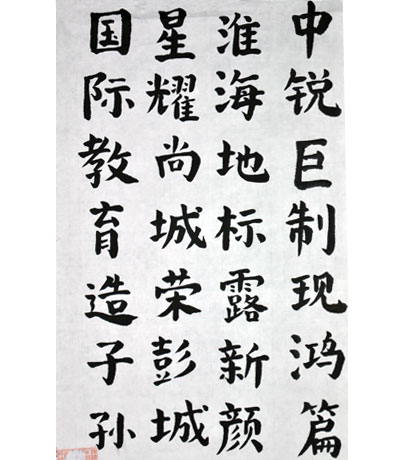 中锐巨制现鸿篇
淮海地标露新颜
星耀尚城荣彭城
国际教育造子孙